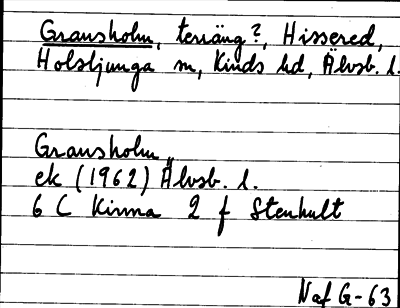 Gransholm, terräng?, Hissered,
Holsljunga sn, Kinds hd, Älvsb. l.
Gransholm
ek (1962) Älvsb. l.
6 C Kinna 2 f Stenhult
Naf G-63